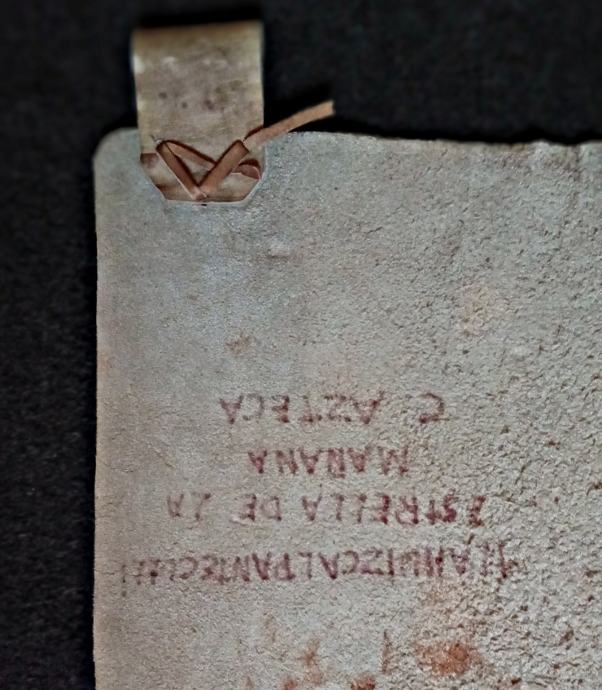 TLAHUIZCALPANTECUHTLI
ESTRELLA DE LA
MANANA
C. AZTECA